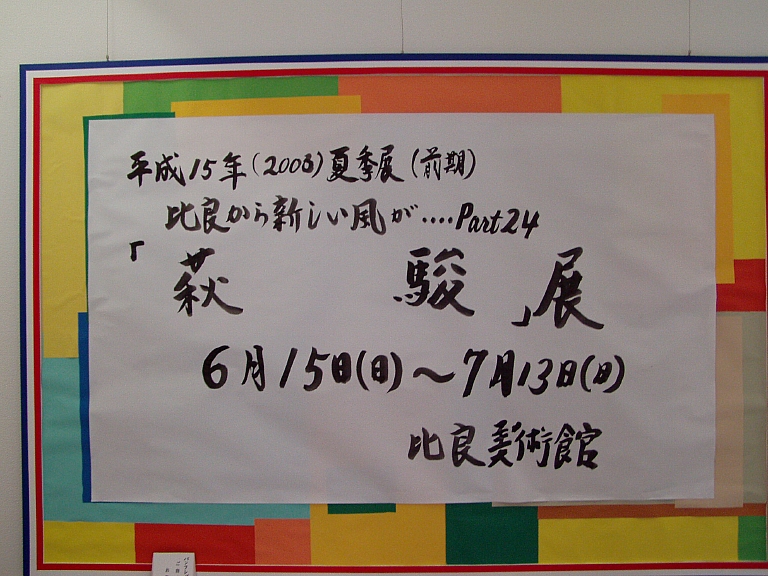 平成15年(2003)夏季展(前期)
比良から新しい風が‥‥Part24
「萩 駿」展
6月15日(日)～7月13日(日)
比良美術館